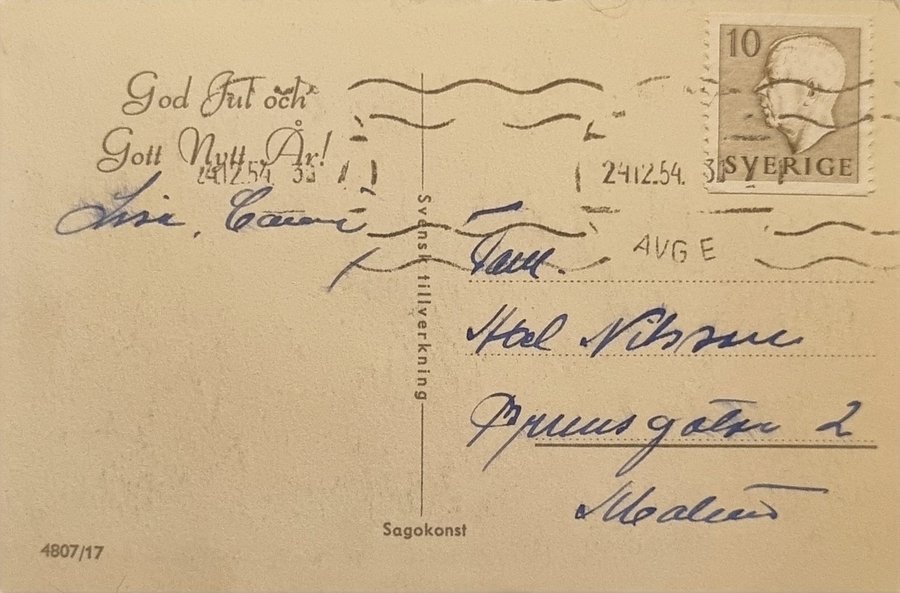 God Jul och
Gott Nytt År!
24.12.54. 33
10
SVERIGE
24.12.54. 3
AVG E
Svensk tillverkning
Fam.
Axel Nilsson
2
Malmö
Sagokonst
4807/17